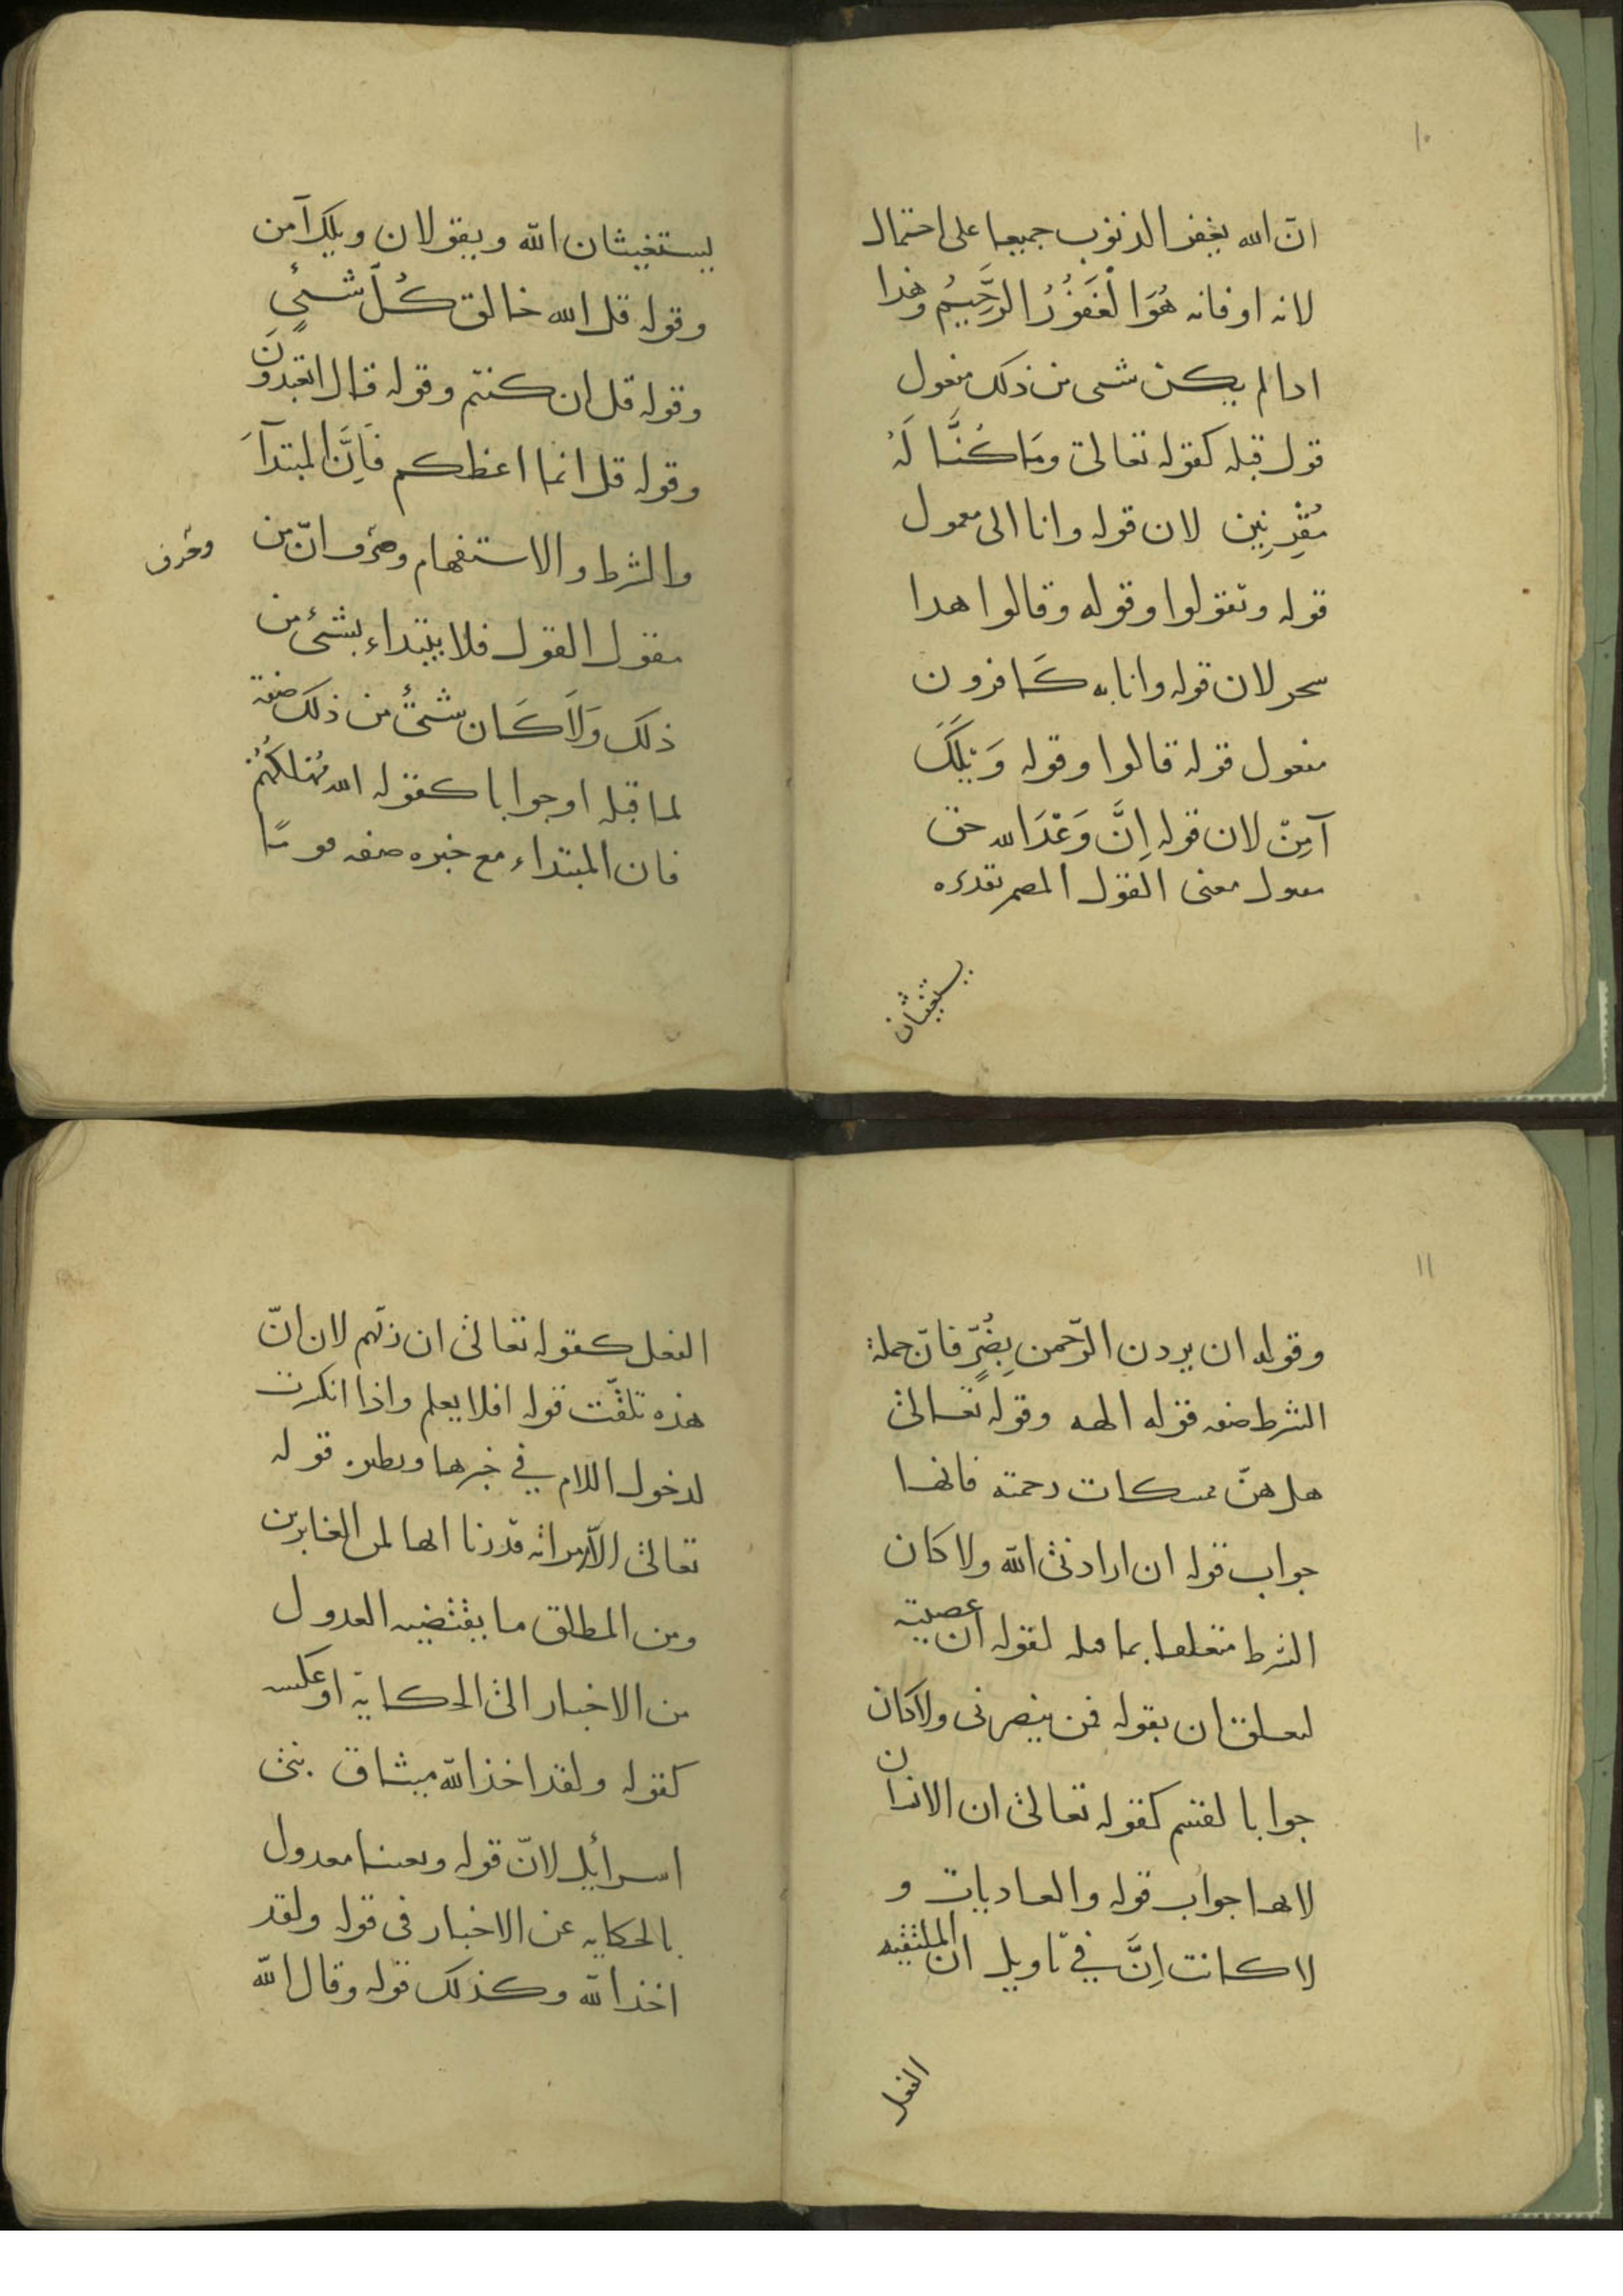 ١٠
انّ الله يغفر الذنوب جميعا على احتمال
لانه او فانه هُوَ الْغَفَوُرُ الرَّحَيِيُم وهذا
ادا لم يكن شى من ذلك مفعول
قول قبله كقوله تعالى وَمَا كُنَّا لَهُ
مُقْرِنِين لان قوله وانا الى معمول
قوله وتقولوا وقوله وقالوا هدا
سحر لان قوله وانا به كَافرون
مفعول قوله قالوا وقوله وَيْلَكَ
آمِنْ لان قوله اِنَّ وَعْدَ الله حق
معول معنى القول المصمر تقدىره
يستغيثان
يستغيثان الله ويقولان ويلك آمن
وقوله قل الله خالق كُلّ شىءٍ
وقوله قل ان كنتم وقوله قال اتعبدونَ
وقوله قل انما اعظكم فَاِنَّ المبتدآَ
والشرط والاستفهام وحرف انّ من
وحرف
مقول القول فلا يبتداء بشئ من
ذلك وَلَا كَان شئٌ من ذلك صفة
لما قبله او جوابا كقوله الله مُهْلكُهُمْ
فان المبتداء مع خبره صفه قومًا
١١
وقوله ان يردن الرّحمن بِضُرٍّ فانّ جملة
الشرط صفه قوله الهه وقوله تعالى
هل هنّ ممسكات رحمته فانها
جواب قوله ان ارادنى الله ولا كان
الشرط متعلقا بما قبله لقوله ان عصيته
لىعلق ان بقوله فمن ينصرنى ولا كان
جوابا لقسم كقوله تعالى ان الانسان
لانها جواب قوله والعاديات و
لا كانت اِنَّ في تاويل ان الملتقيه
الفعل
الفعل كقوله تعالى ان ربّهم لان انّ
هذه تلقّت قوله افلا يعلم واذا انكرت
لدخول اللام في خبرها ونطيره قوله
تعالى الّا امراته قدّرنا انها لمن الغابرين
ومن المطلق ما يقتضيه العدول
من الاخبار الى الحكاية او عكسه
كقوله ولقد اخذ الله ميثاق بنى
اسرائيل لانّ قوله وبعثنا معدول
بالحكايه عن الاخبار فى قوله ولقد
اخذ الله وكذلك قوله وقال الله